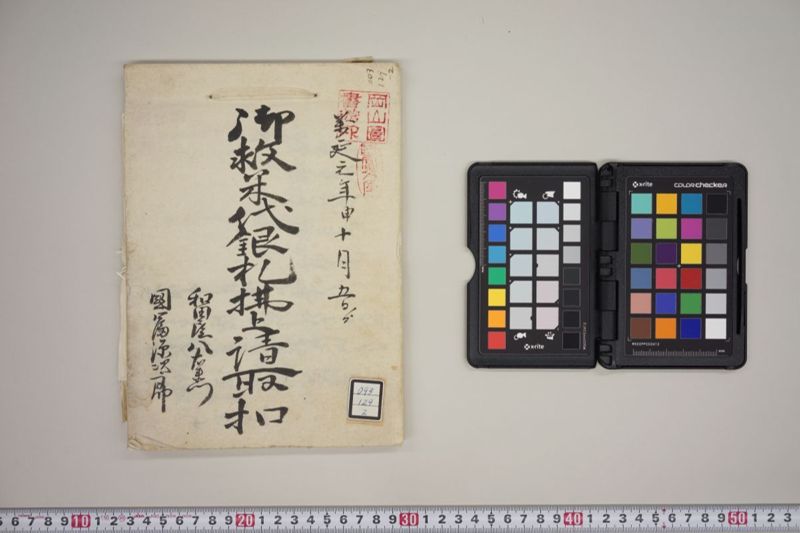 萬延元年申十月
御救米代銀札拂上請取扣
和田屋八右衛門
國富源次郎
岡山縣
099
129
2
x-rite
x-rite
colorchecker
6 7 8 9 10 1 2 3 4 5 6 7 8 9 20 1 2 3 4 5 6 7 8 9 30 1 2 3 4 5 6 7 8 9 40 1 2 3 4 5 6 7 8 9 50 1 2 3